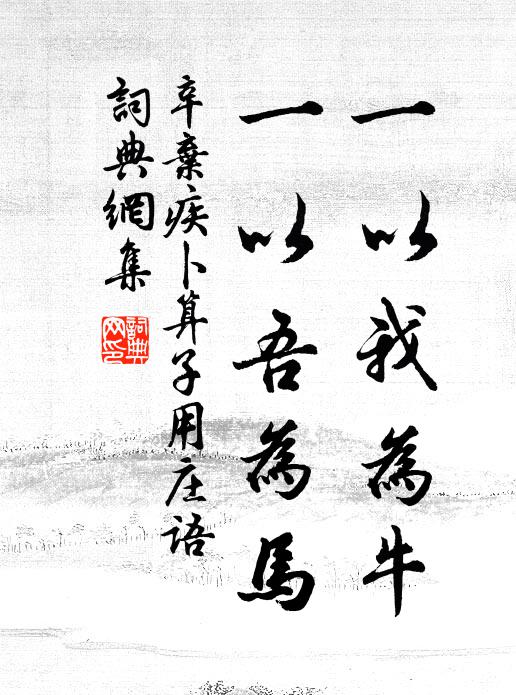 一以我為牛
一以吾為馬
辛棄疾卜算子用庄語
詞典網集
詞典網印